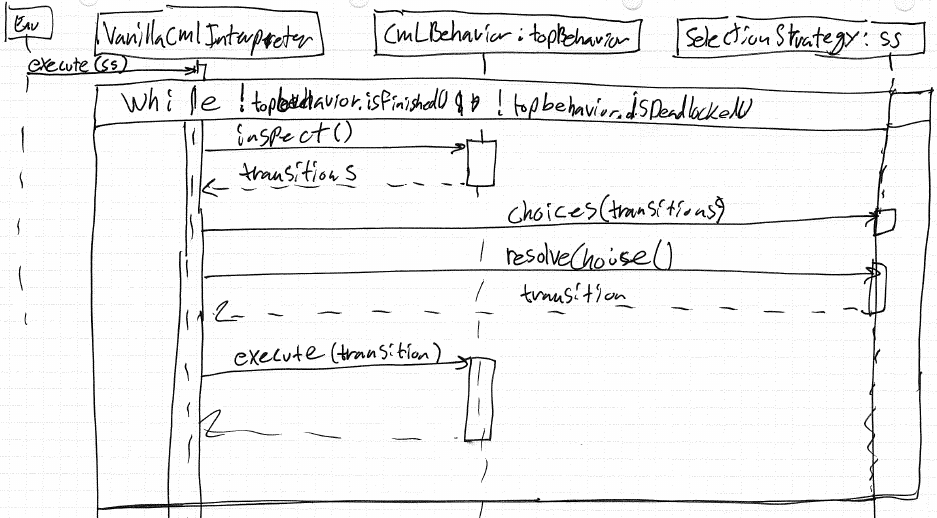 Env
:VanillaCmlInterpreter
CmLBehavior : topBehavior
SelectionStrategy: ss
execute(ss)
While !topbehavior.isFinished() && !topbehavior.isDeadlocked()
inspect()
transitions
choices(transitions)
resolveChoise()
transition
execute(transition)